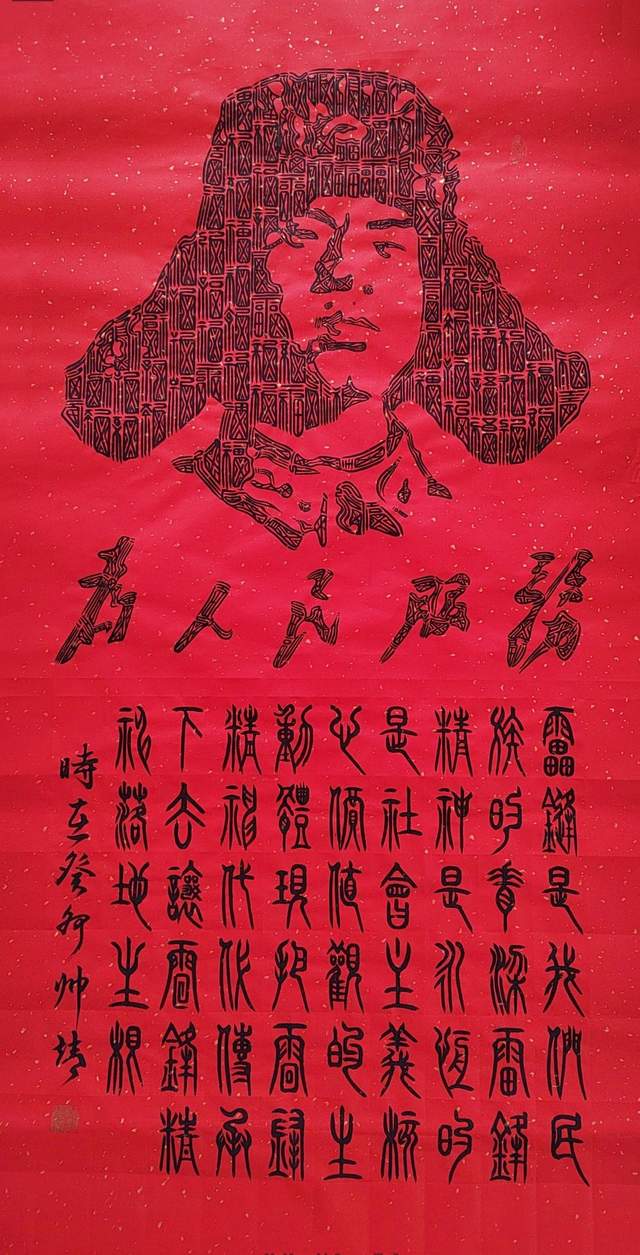 為人民服務
雷鋒是我們民
族的脊梁雷鋒
精神是永恆的
是社會主義核
心價值觀的生
動體現把雷鋒
精神代代傳承
下去讓雷鋒精
神落地生根
時在癸卯帅